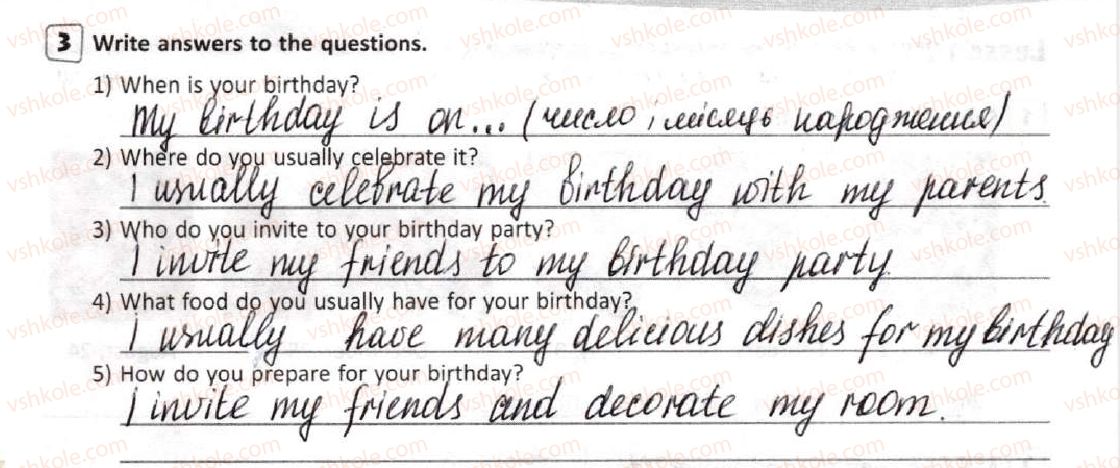 3 Write answers to the questions.
1) When is your birthday?
My birthday is on... (число і місяць народження)
2) Where do you usually celebrate it?
I usually celebrate my birthday with my parents.
3) Who do you invite to your birthday party?
I invite my friends to my birthday party.
4) What food do you usually have for your birthday?
I usually have many delicious dishes for my birthday
5) How do you prepare for your birthday?
I invite my friends and decorate my room.